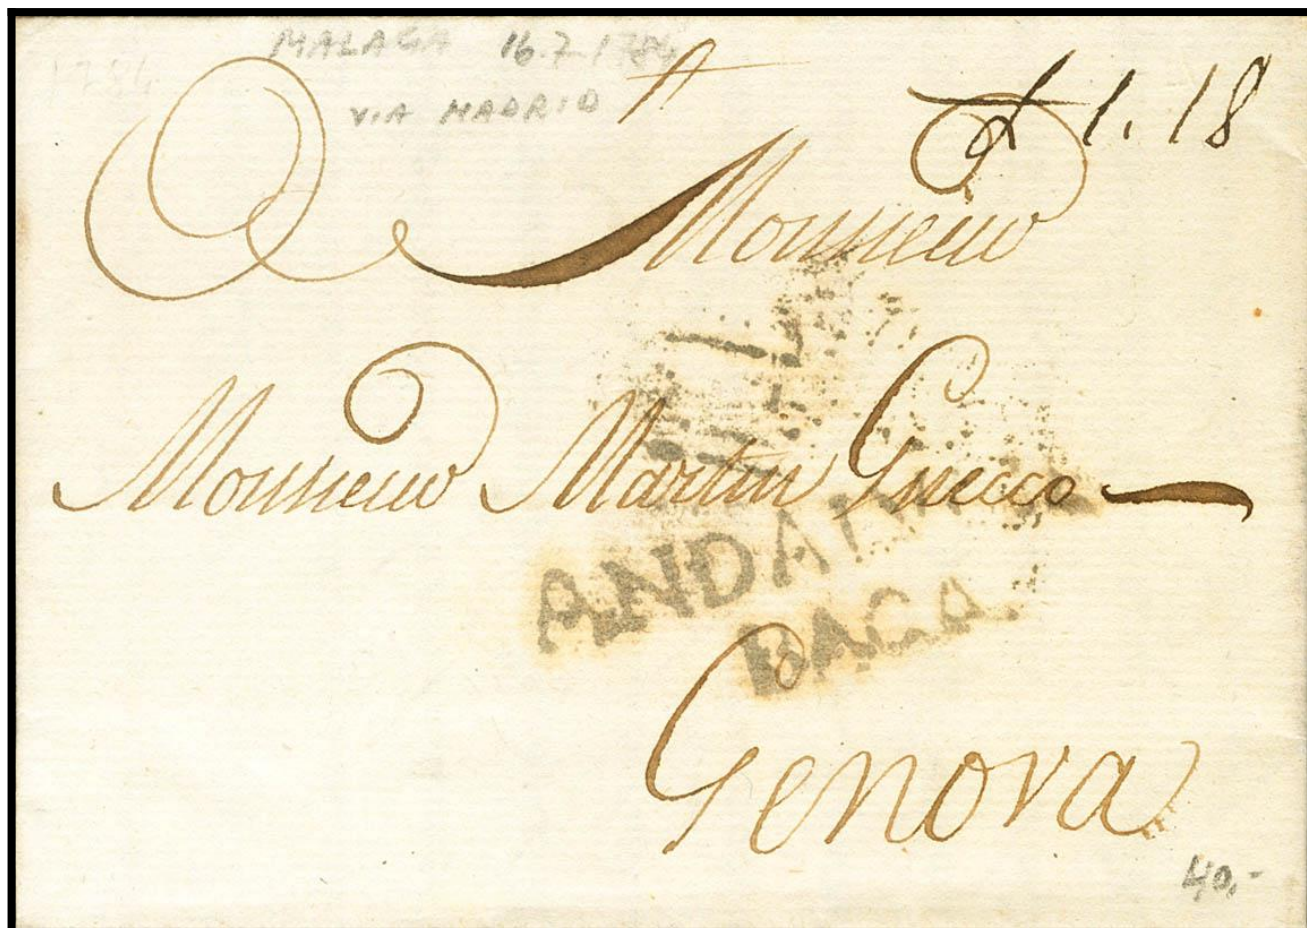 MALAGA 16.7.1784
1784
VIA MADRID
£ 1.18
Monsieur
Monsieur Martin Gnecco
ANDALUCIA
BAGA
Genova
40,-